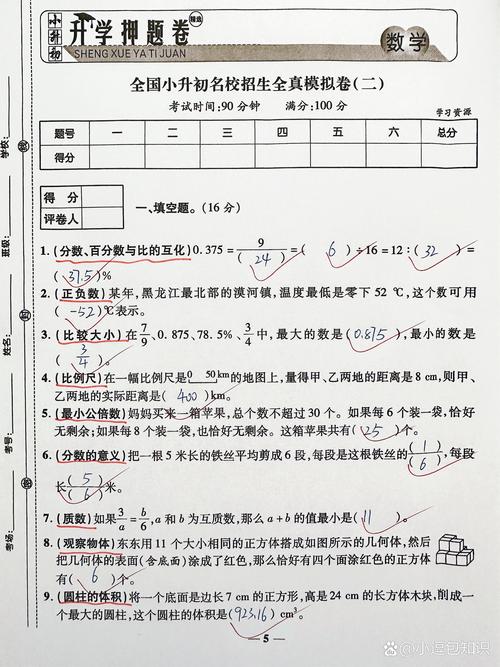 小升初
升学押题卷 精选
SHENG XUE YA TI JUAN
数学
全国小升初名校招生全真模拟卷(二)
考试时间:90分钟 满分:100分
学习资源
题号 一 二 三 四 五 六 总分
得分
得分
评卷人
一、填空题。(16分)
1.(分数、百分数与比的互化)0.375=9/(24)=(6)÷16=12:(32)=
(37.5)%
2.(正负数)某年,黑龙江最北部的漠河镇,温度最低是零下52℃,这个数可用
(-52)℃表示。
3.(比较大小)在7/9、0.875、78.5%、3/4中,最大的数是(0.875),最小的数是
(3/4)。
4.(比例尺)在一幅比例尺是0 50km的地图上,量得甲、乙两地的距离是8cm,则甲、
乙两地的实际距离是(400)km。
5.(最小公倍数)妈妈买来一箱苹果,总个数不超过30个。如果每6个装一袋,恰好
无剩余;如果每8个装一袋,也恰好无剩余。这箱苹果共有(25)个。
6.(分数的意义)把一根5米长的铁丝平均剪成6段,每段是这根铁丝的(1)/(6),每段
长(5)/(6)米。
7.(质数)如果3/a=b/6,a和b为互质数,那么a+b的值最小是(11)。
8.(观察物体)东东用11个大小相同的正方体搭成如图所示的几何体,然后
把几何体的表面(含底面)涂成了红色,那么恰好有四个面涂红色的正方体
有(6)个。
9.(圆柱的体积)将一个底面是边长7cm的正方形,高是24cm的长方体木块,削成一
个最大的圆柱,这个圆柱的体积是(923.16)cm³。
5
学校:
班级:
姓名:
考号:
考场:
@小逗包知识